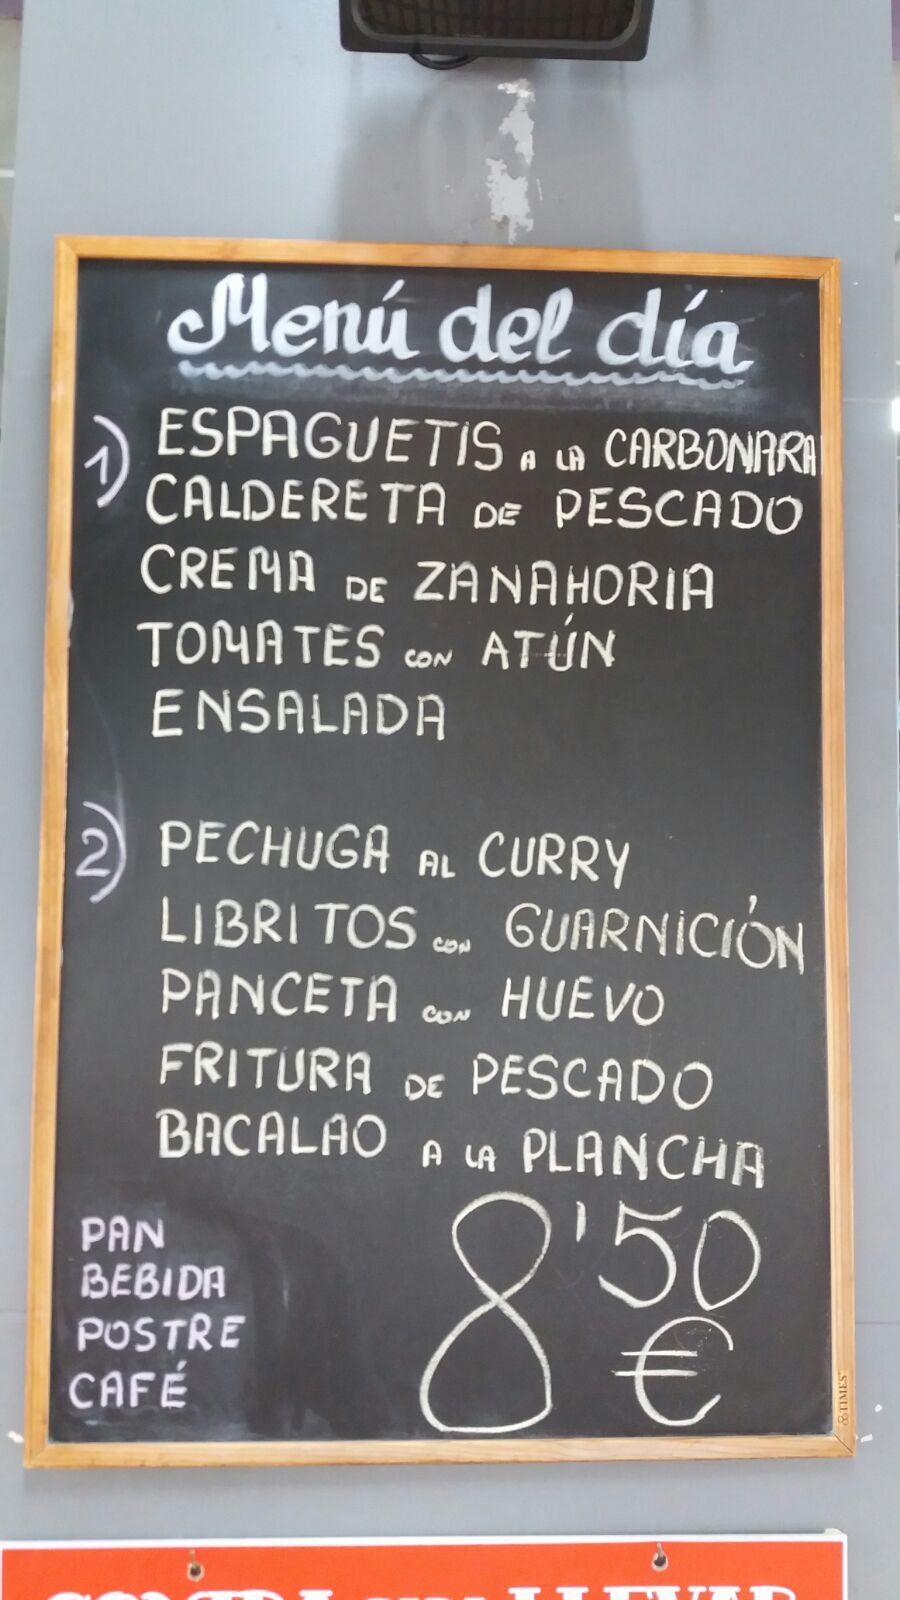 Menú del día
1) ESPAGUETIS A LA CARBONARA
CALDERETA DE PESCADO
CREMA DE ZANAHORIA
TOMATES CON ATÚN
ENSALADA
2) PECHUGA AL CURRY
LIBRITOS CON GUARNICIÓN
PANCETA CON HUEVO
FRITURA DE PESCADO
BACALAO A LA PLANCHA
PAN
BEBIDA
POSTRE
CAFÉ
8'50
€
TIMES
COMIDA PARA LLEVAR